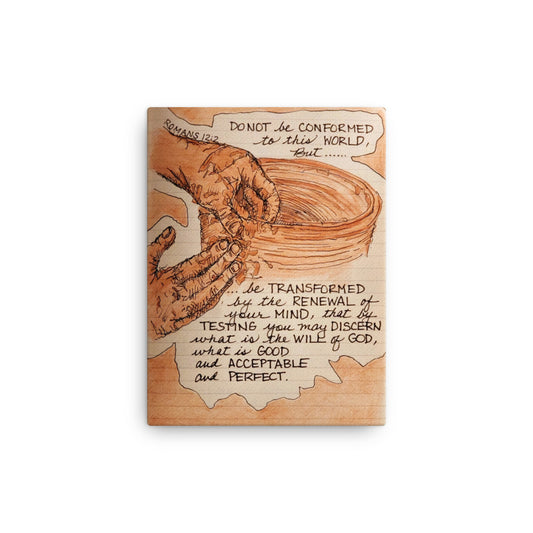 ROMANS 12:2
DO NOT be CONFORMED
to this WORLD,
But ......
... be TRANSFORMED
by the RENEWAL of
your MIND, that by
TESTING you may DISCERN
what is the WILL of GOD,
what is GOOD
and ACCEPTABLE
and PERFECT.